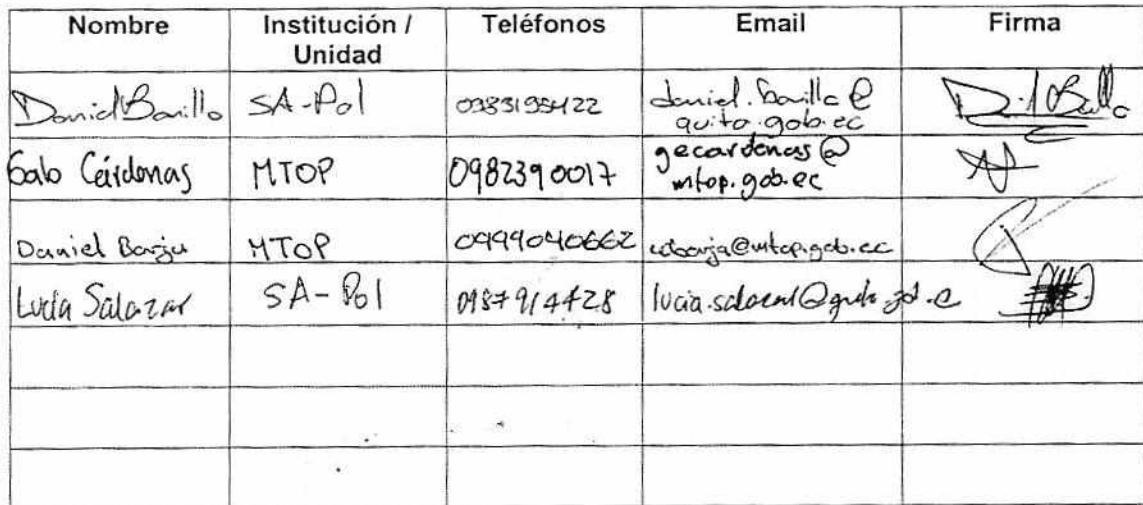 Nombre
Institución /
Unidad
Teléfonos
Email
Firma
Daniel Barillo
SA-Pol
0983195422
daniel.barillo@
quito.gob.ec
Galo Cárdenas
MTOP
0982390017
gecardenas@
mtop.gob.ec
Daniel Borja
MTOP
0999040662
Lucía Salazar
SA-Pol
0987914428